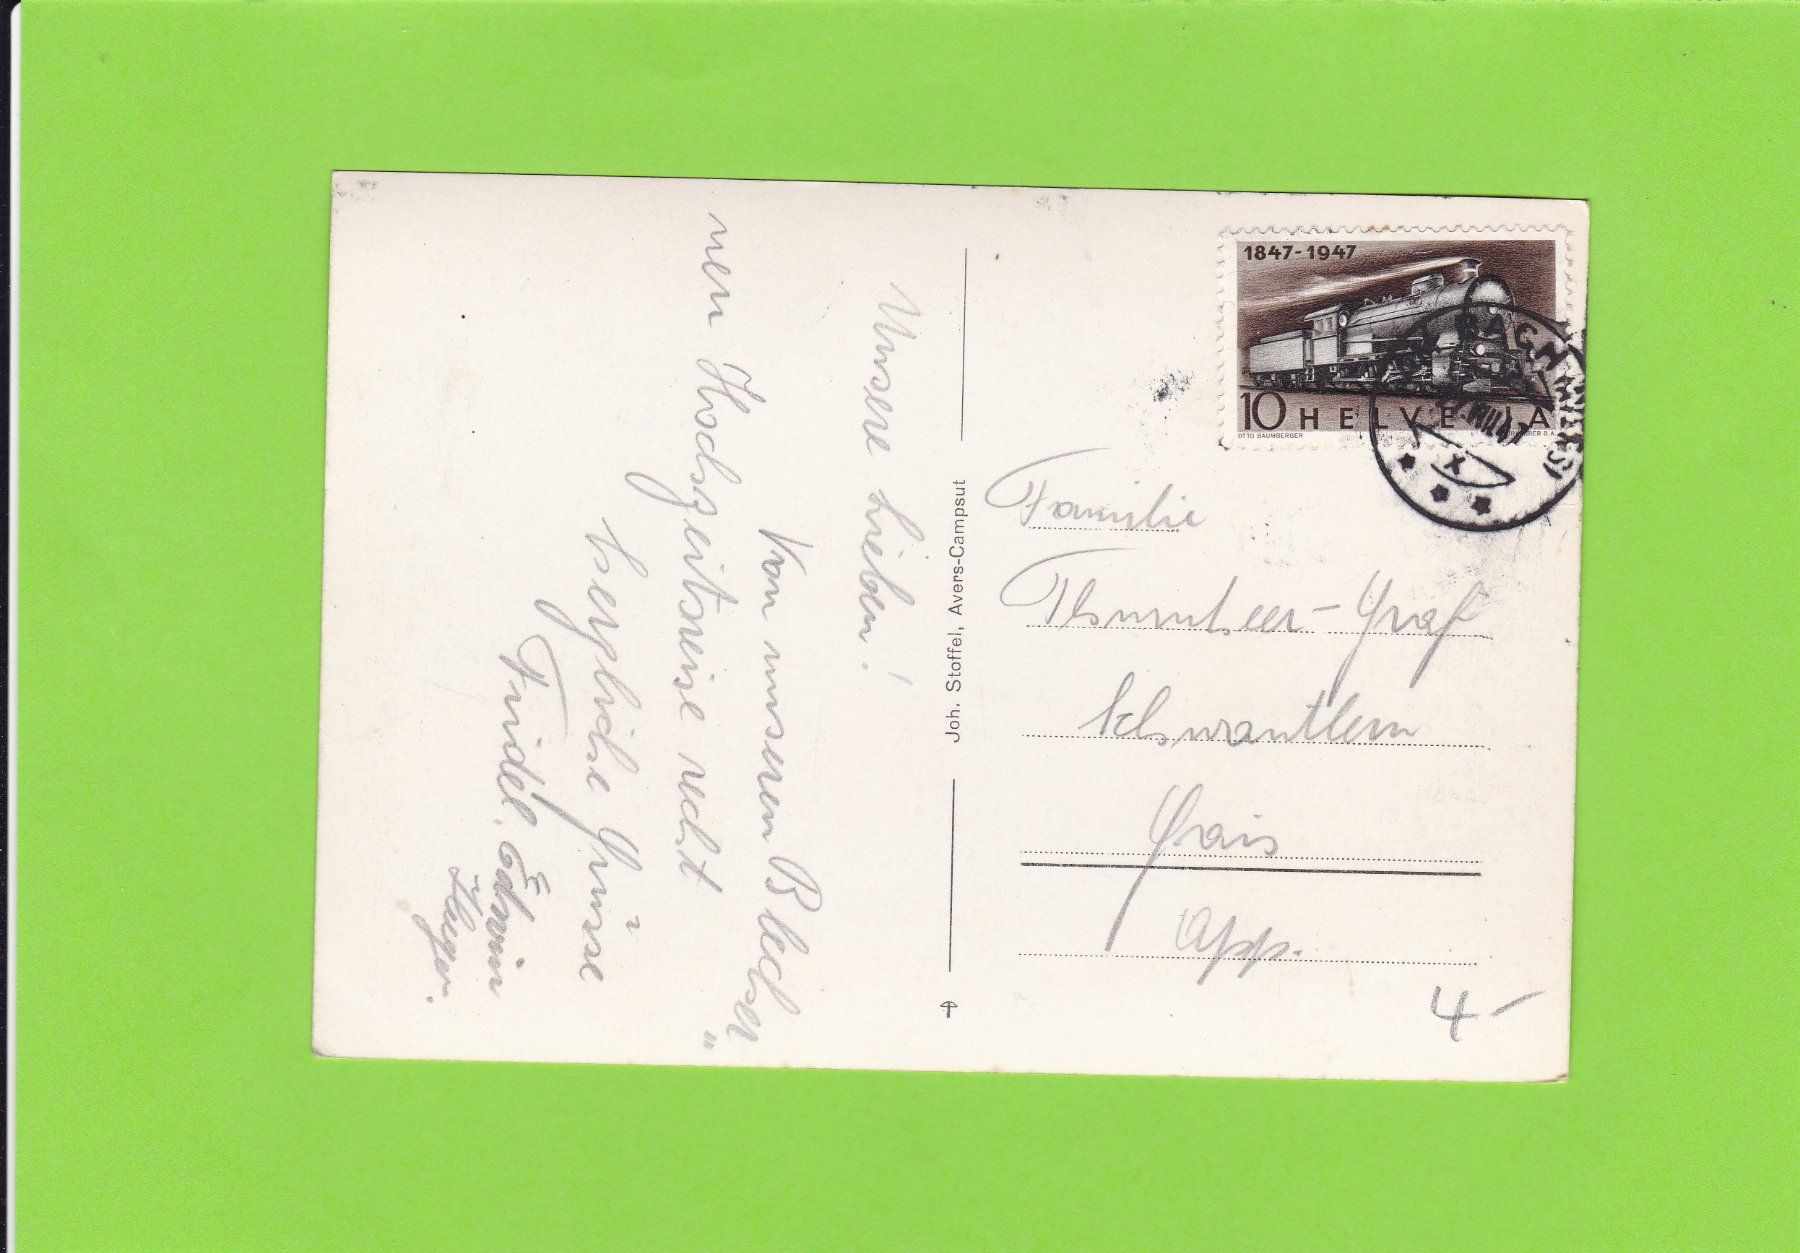 Unsere Lieben!
Von unserem Blecher
nen Hochzeitsreise recht
herzliche Grüsse
Fridel. Edwin
Joh. Stoffel, Avers-Campsut
1847-1947
10 HELVETIA
OTTO BAUMBERGER
Familie
Graf
Gais
App.
4-